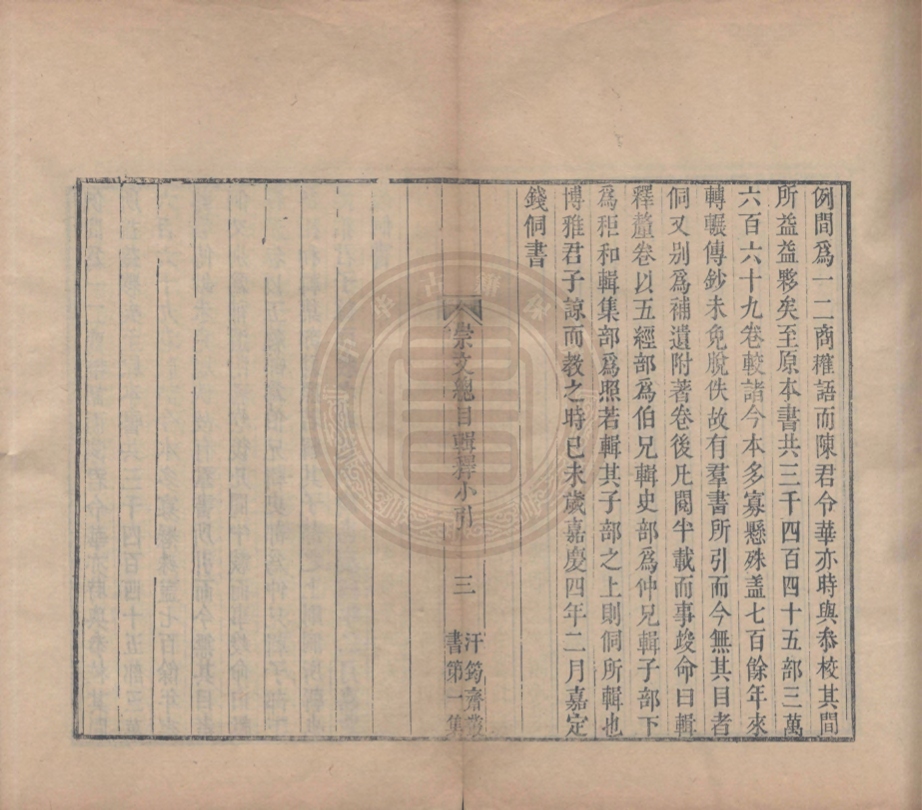 例間爲一二商確語而陳君令華亦時與叅校其間
所益益夥矣至原本書共三千四百四十五部三萬
六百六十九卷較諸今本多寡懸殊盖七百餘年來
轉輾傳鈔未免脫佚故有羣書所引而今無其目者
侗又别爲補遺附著卷後凡閱半載而事竣命曰輯
釋釐卷以五經部爲伯兄輯史部爲仲兄輯子部下
爲秬和輯集部爲照若輯其子部之上則侗所輯也
博雅君子諒而教之時已未歲嘉慶四年二月嘉定
錢侗書
崇文總目輯釋小引
三
汗筠齋叢
書第一集